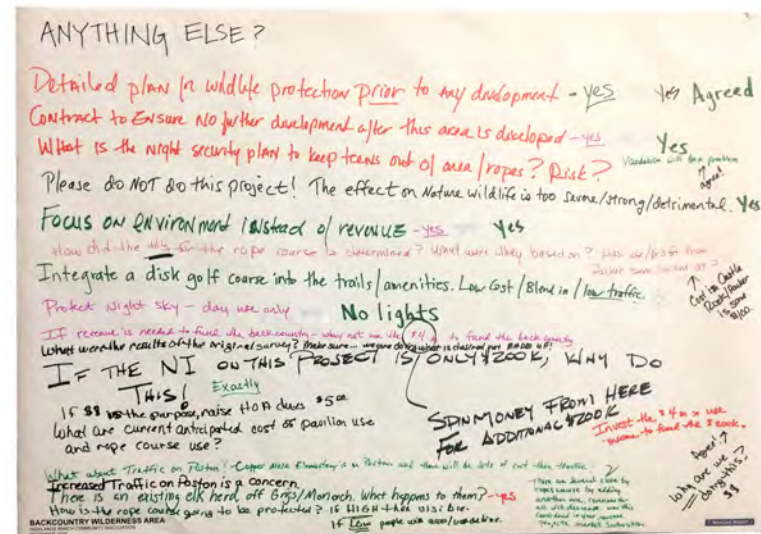 ANYTHING ELSE?
Detailed plan for wildlife protection prior to any development - yes yes Agreed
Contract to Ensure No further development after this area is developed - yes Yes
What is the night security plan to keep teens out of area/ropes? Risk? Vandalism will be a problem
agree!
Please do NOT do this project! The effect on Nature Wildlife is too severe/strong/detrimental. Yes
Focus on environment instead of revenue - yes Yes
How did the for the rope course determined? What were they based on? Has use/profit from
Integrate a disk golf course into the trails/amenities. Low Cost/Blend in/low traffic.
Cost is Castle Rock
is some
Protect Night sky - day use only No lights
If revenue is needed to fund the backcountry - why not use the $4 to fund the backcountry
What were the results of the original survey? make sure... we are doing what is desired
IF THE NI ON THIS PROJECT IS ONLY $200K, WHY DO
THIS! Exactly
If $$ is the purpose, raise HOA dues $5.00
What are current anticipated cost of pavilion use
and rope course use?
SPIN MONEY FROM HERE
FOR ADDITIONAL $200K
Invest the $4m & use
income to fund the $200k.
Agree!
Who are we doing this?
$$
What about Traffic on Poston? - Copper Mesa Elementary is on Poston and there will be lots of
Increased Traffic on Poston is a concern
There is an existing elk herd off Grigs/Monarch. What happens to them? - yes
How is the rope course going to be protected? If HIGH then visible.
If Low people will
There are several
ropes course by adding
another one, revenue
all will decrease. Was this
considered in your revenue
projects. market saturation
BACKCOUNTRY WILDERNESS AREA
HIGHLANDS RANCH COMMUNITY ASSOCIATION